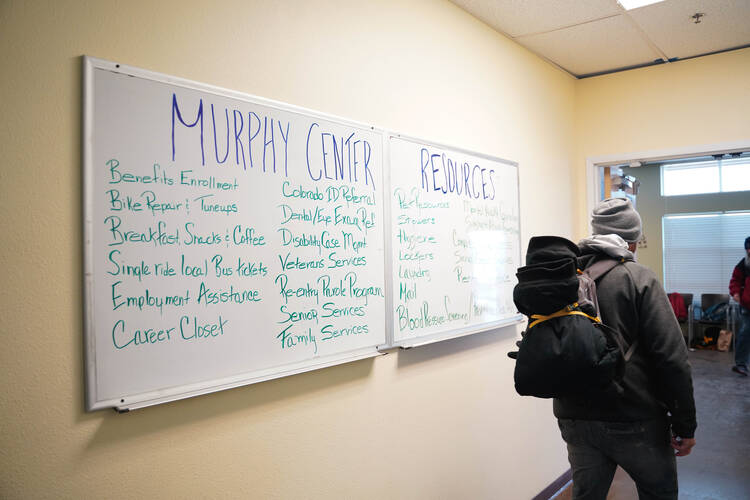 MURPHY CENTER
Benefits Enrollment
Bike Repair & Tuneups
Breakfast, Snacks & Coffee
Single ride local Bus tickets
Employment Assistance
Career Closet
Colorado ID Referral
Dental/Eye Exam Ref
Disability Case Mgmt
Veterans Services
Re-entry Parole Program
Senior Services
Family Services
RESOURCES
Pet Resources
Showers
Hygiene
Lockers
Laundry
Mail
Blood Pressure Screening
Mental Health